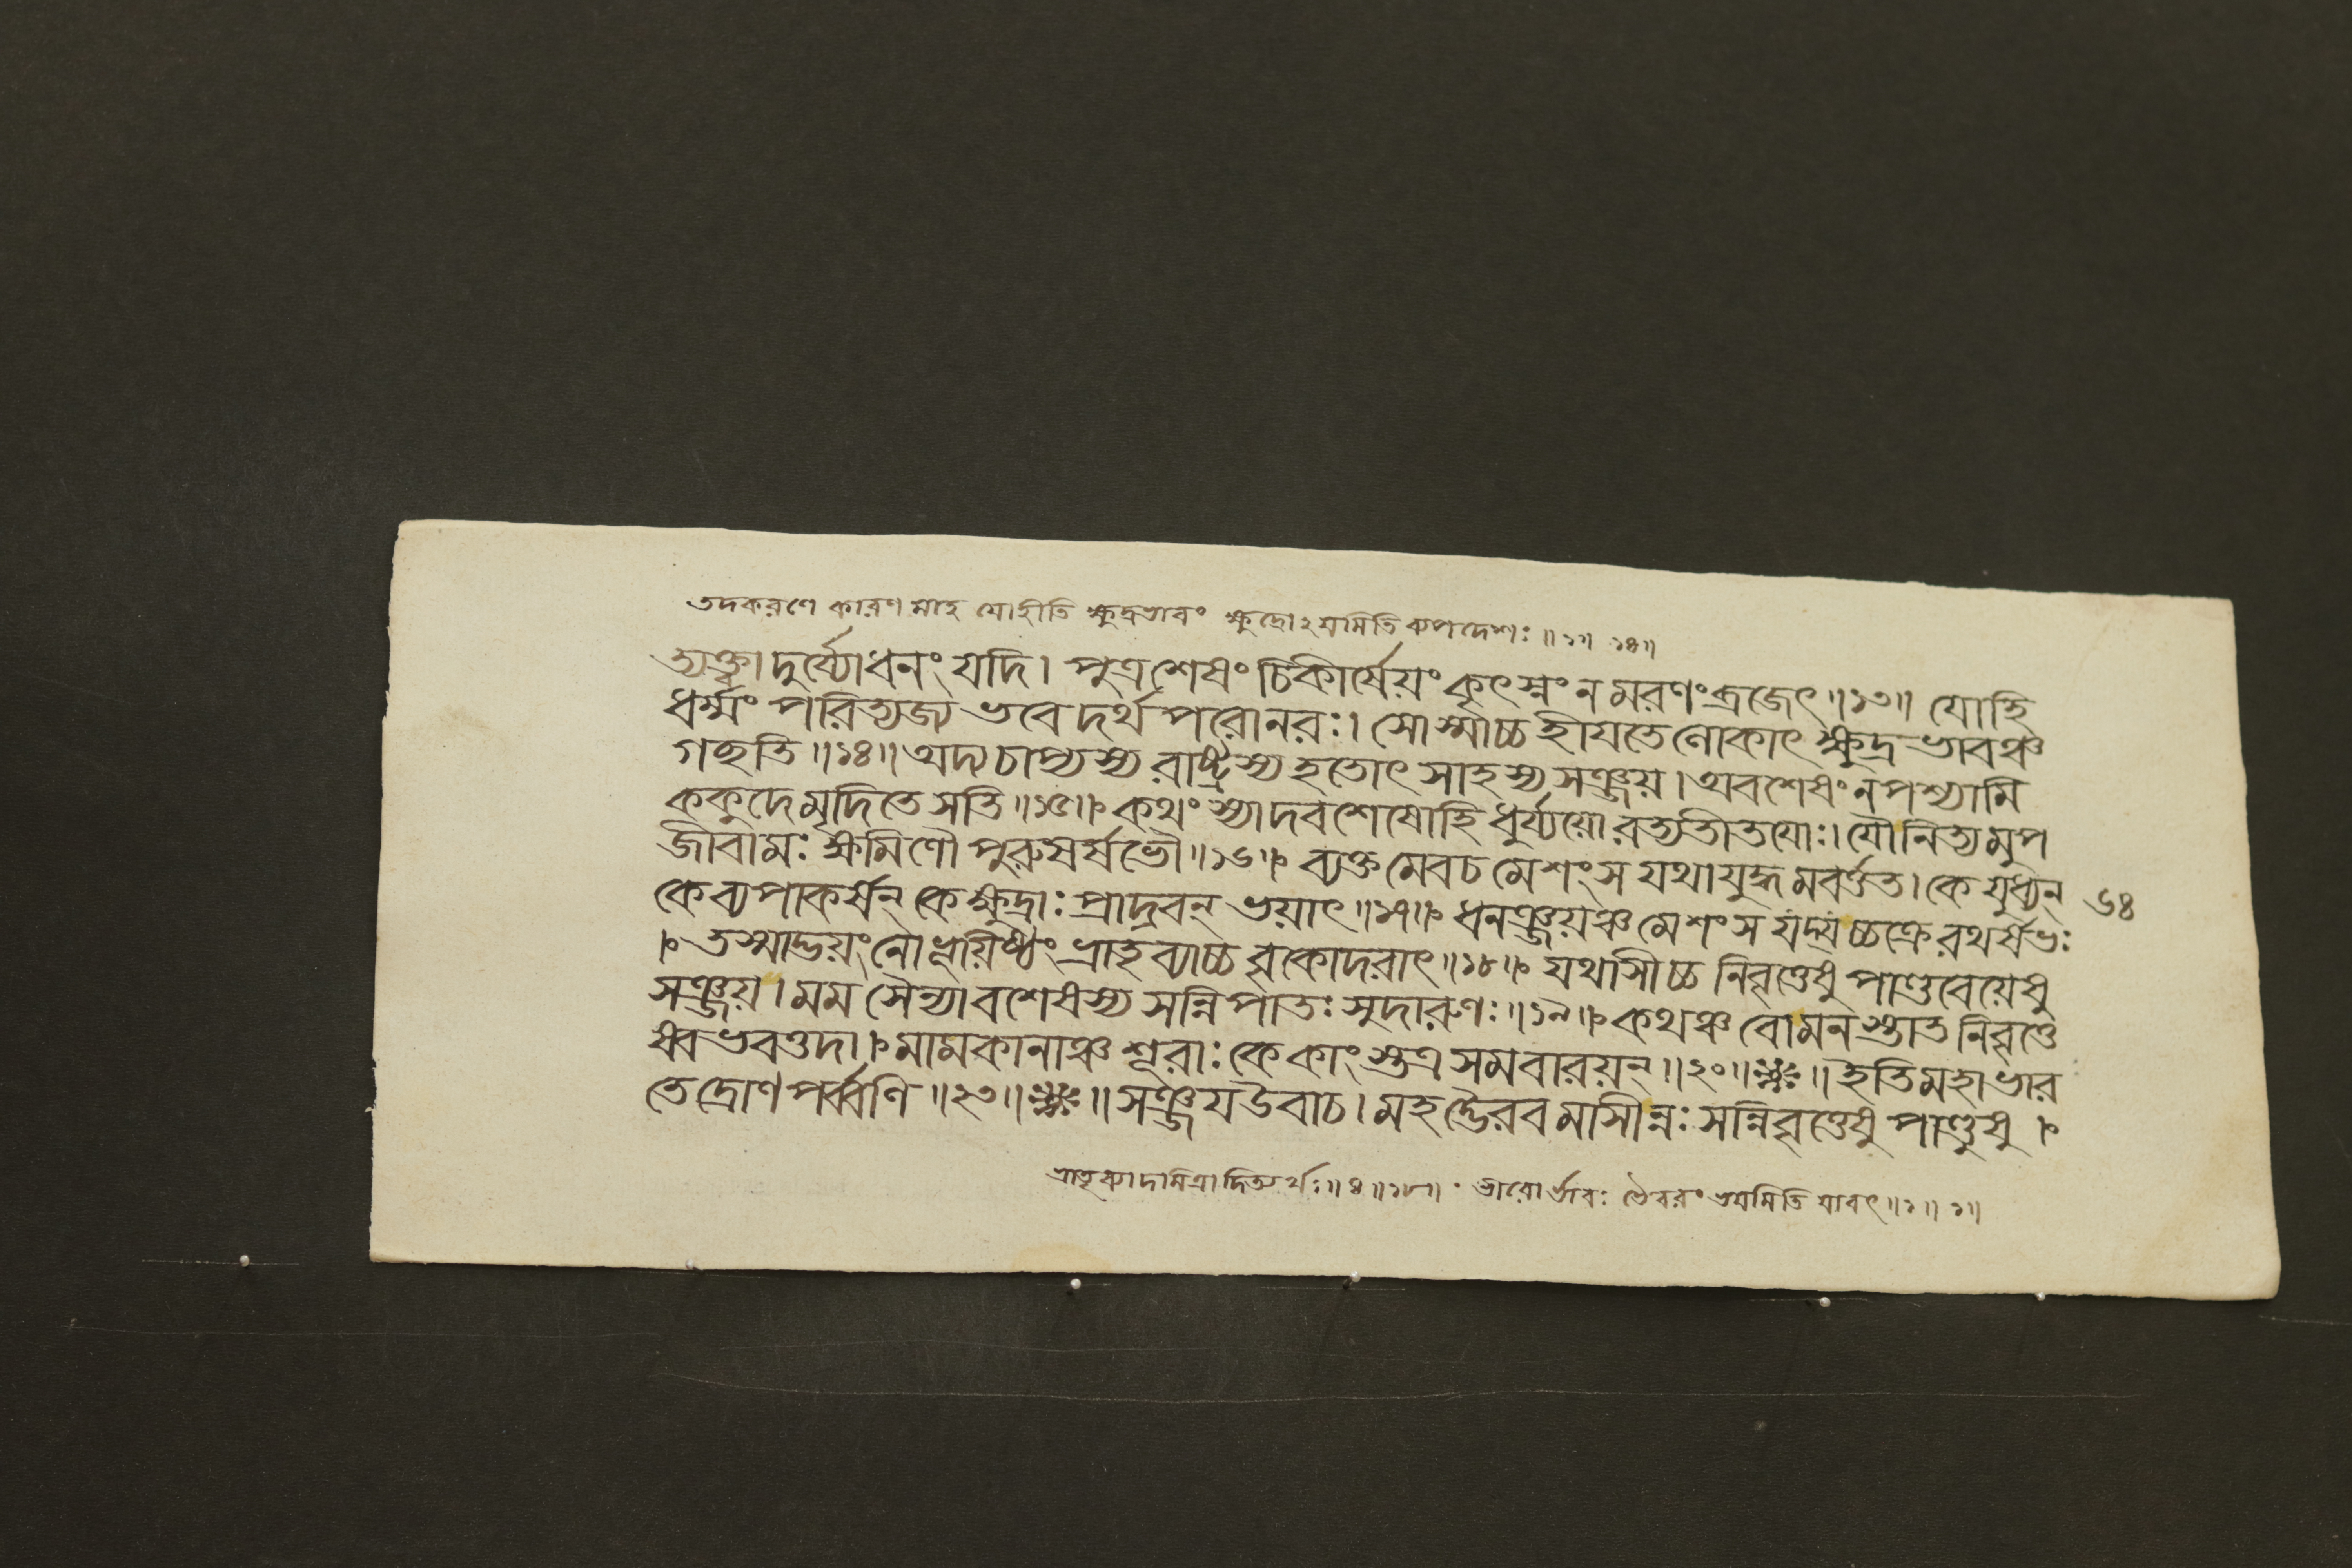 তদকরণে কারণ মাহ যোহীতি ক্ষুদ্রভাবং ক্ষুদ্রোঽয়মিতি ব্যপদেশঃ ॥ ১৩॥ ১৪॥
ত্যক্ত্বা দুর্য্যোধনং যদি। পুত্রশেষং চিকীর্ষেয়ং কৃৎস্নং ন মরণং ব্রজেৎ॥১৩॥ যোহি
ধর্ম্মং পরিত্যজ্য ভবেদর্থপরোনরঃ। সোস্মাচ্চ হীযতেলোকাৎ ক্ষুদ্রভাবঞ্চ
গচ্ছতি॥১৪॥ অদ্য চাপ্যস্য রাষ্ট্রস্য হতোৎসাহস্য সঞ্জয়। অবশেষং ন পশ্যামি
ককুদে মৃদিতে সতি॥১৫॥ কথং স্যাদবশেষোহি ধুর্য্যয়োরভ্যতীতযোঃ। যৌ নিত্যমুপ
জীবামঃ ক্ষমিণৌ পুরুষর্ষভৌ॥১৬॥ ব্যক্তমেবচ মে শংস যথা যুদ্ধমবর্ত্তত। কে যুধ্যন্
কে ব্যপাকর্ষন্ কে ক্ষুদ্রাঃ প্রাদ্রবন্ ভয়াৎ॥১৭॥ ধনঞ্জয়ঞ্চ মে শংস যদ্যচ্চক্রে রথর্ষভঃ
৬৪
। তস্মাদ্ভয়ং নো ভূয়িষ্ঠং ভ্রাতৃব্যাচ্চ বৃকোদরাৎ॥১৮॥ যথাসীচ্চ নিবৃত্তেষু পাণ্ডবেয়েষু
সঞ্জয়। মম সৈন্যাবশেষস্য সন্নিপাতঃ সুদারুণঃ॥১৯॥ কথঞ্চ বোমনস্তাত নিবৃত্তে
ষ্বভবত্তদা। মামকানাঞ্চ শূরাঃ কে কাংস্তত্র সমবারয়ন্॥২০॥ ॥ ইতি মহাভার
তে দ্রোণপর্ব্বণি॥২৩॥ ॥ সঞ্জয উবাচ। মহদ্ভৈরবমাসীন্নঃ সন্নিবৃত্তেষু পাণ্ডুষু।
ভ্রাতৃব্যাদমিত্রাদিত্যর্থঃ॥ ৪॥১৮॥ ভৈরবং ভয়মিতি যাবৎ॥১॥ ১॥